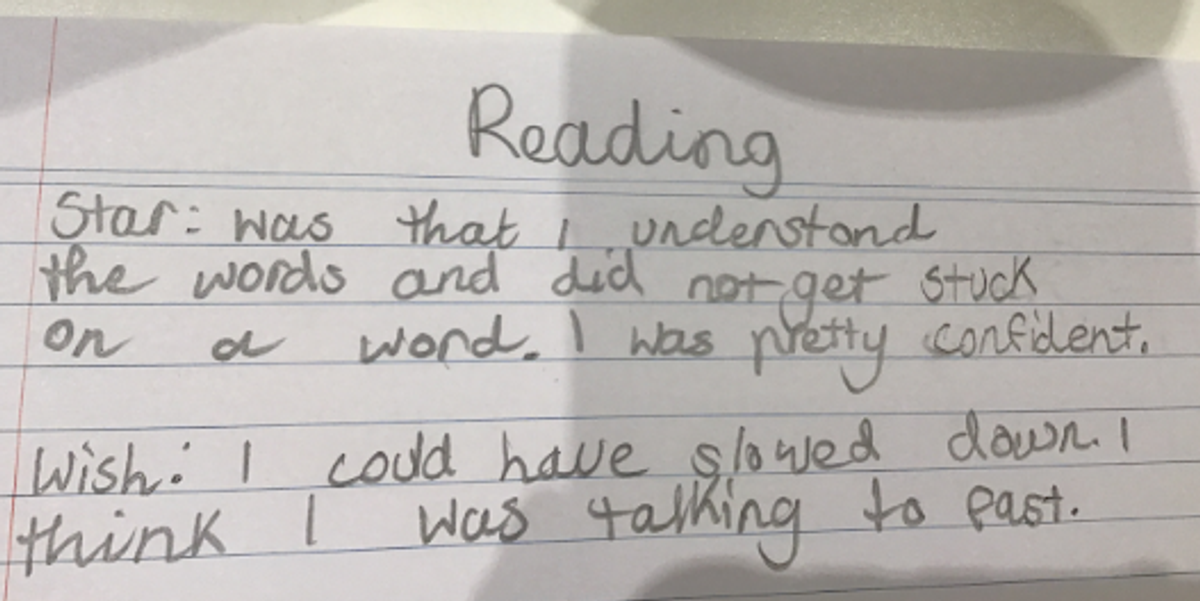 Reading
Star: was that I understand
the words and did not get stuck
on a word. I was pretty confident.
Wish: I could have slowed down. I
think I was talking to past.